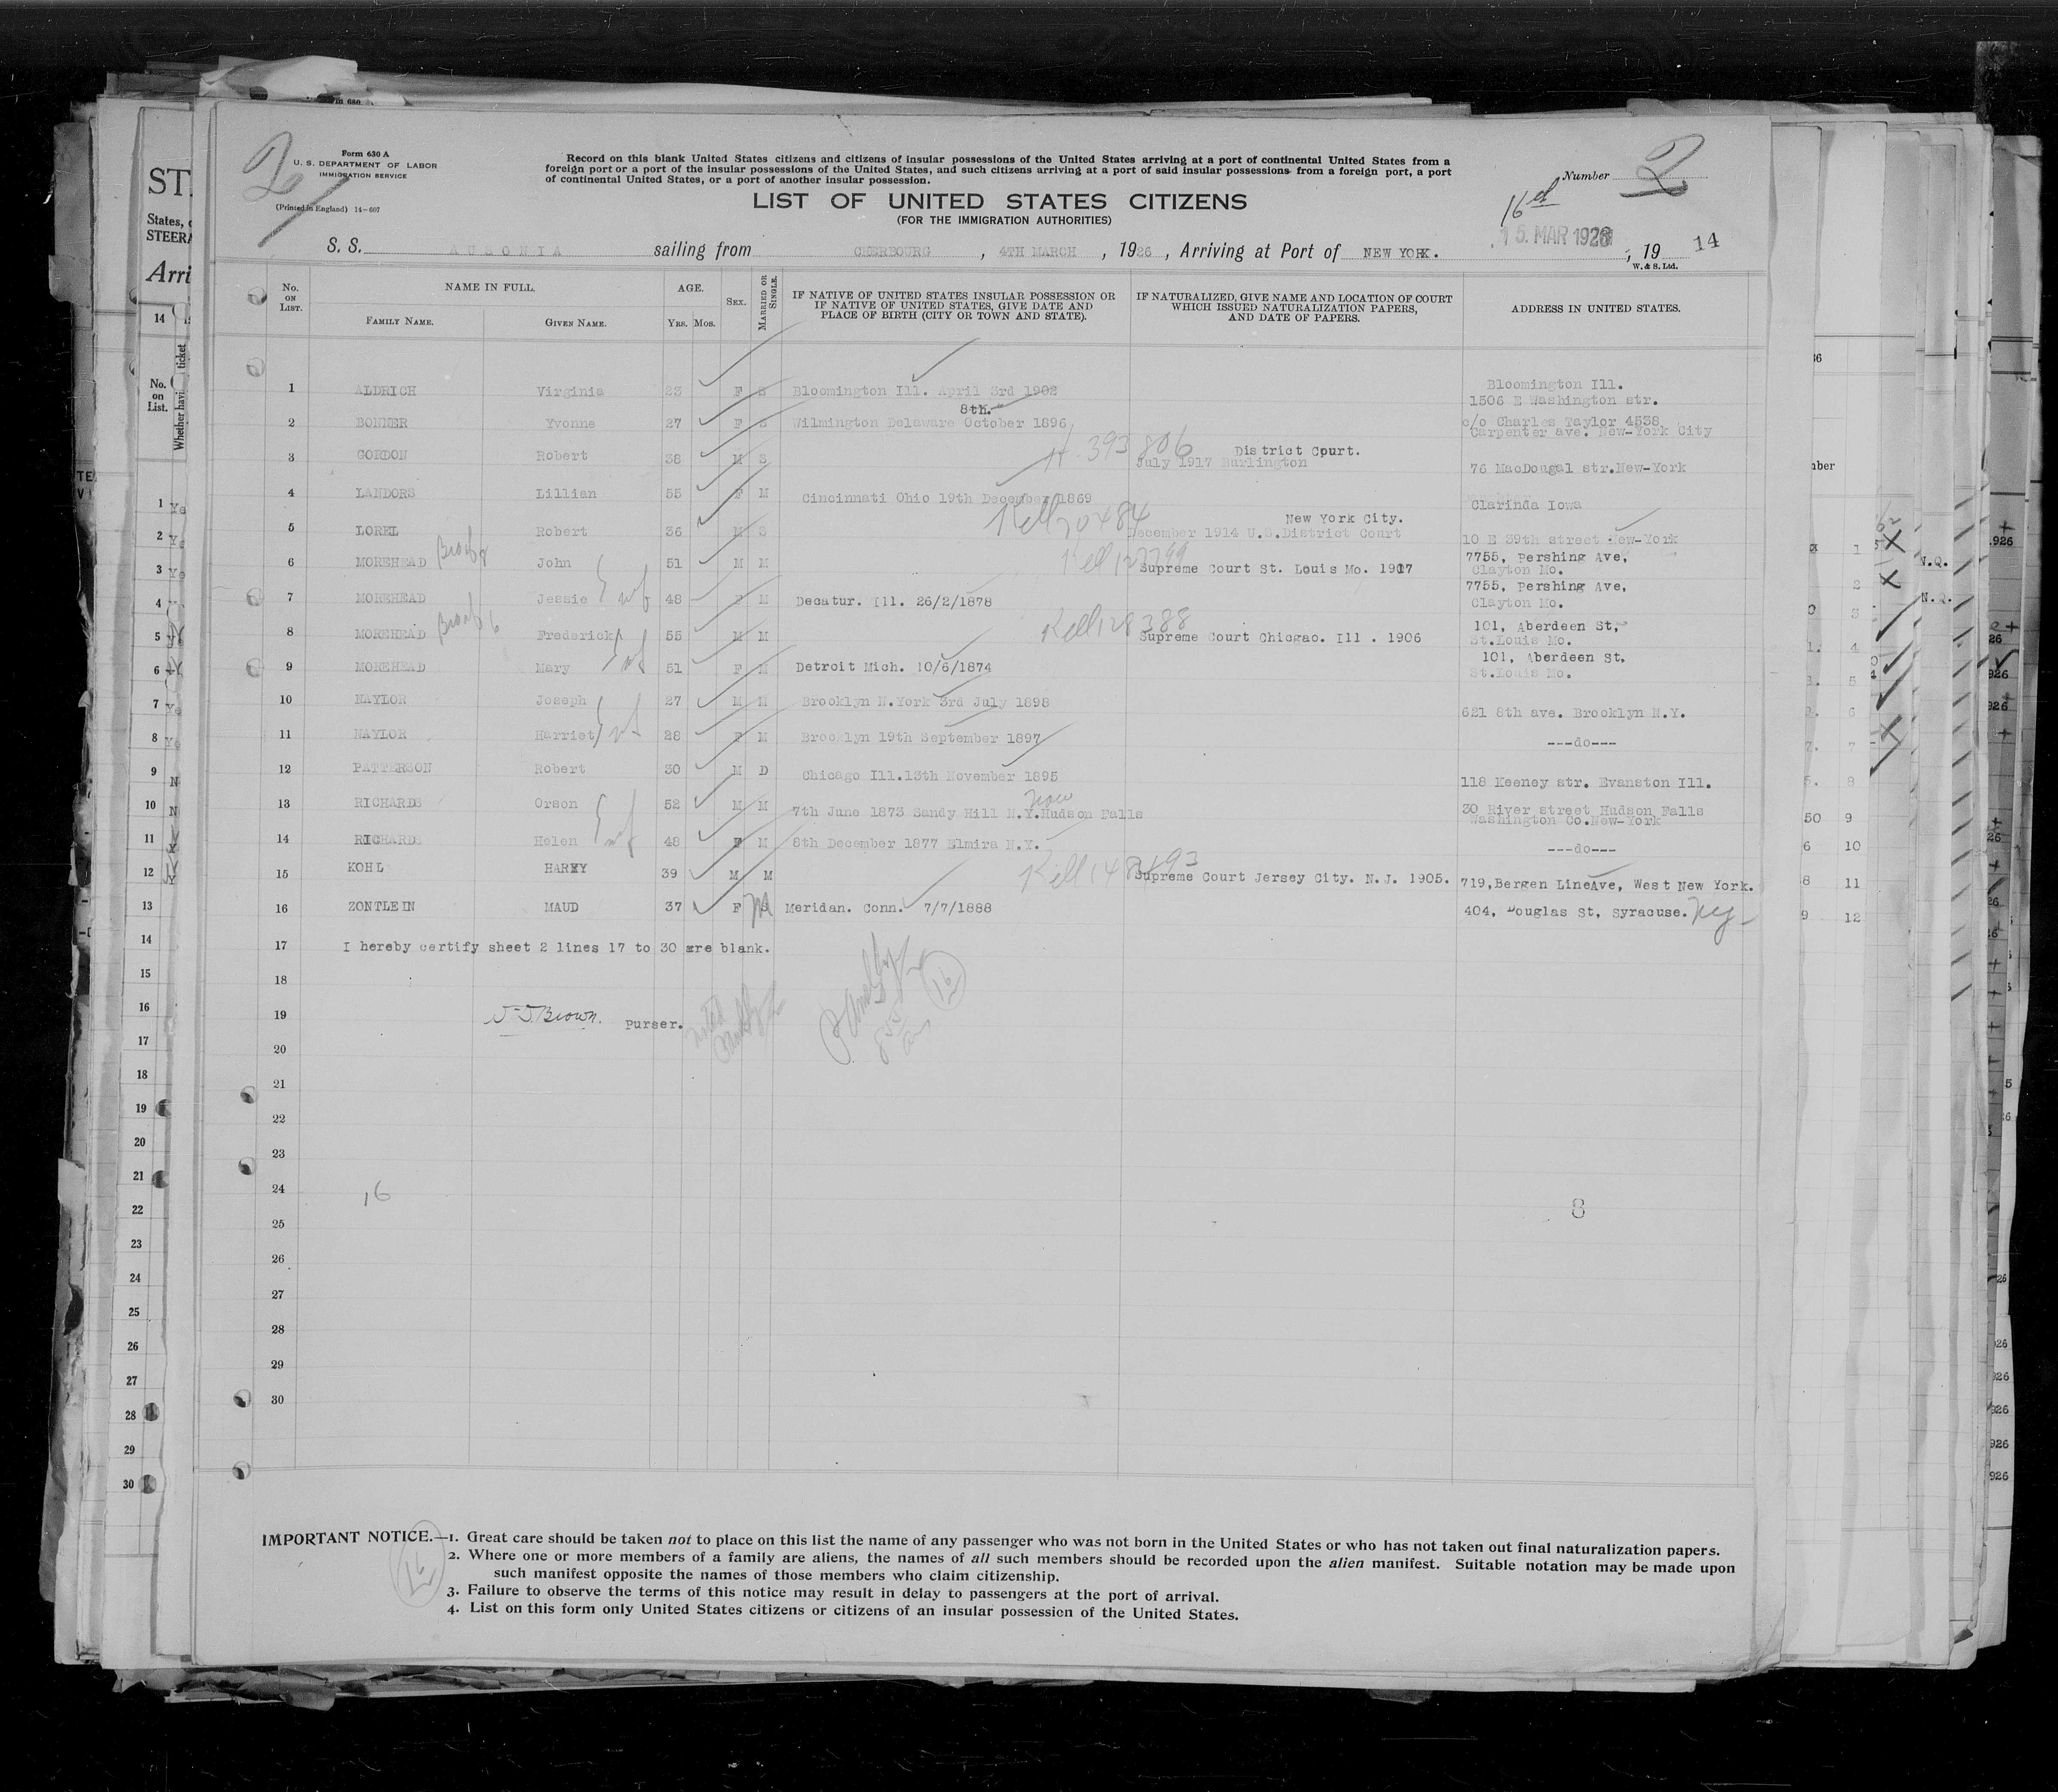 Form 630 A
U. S. DEPARTMENT OF LABOR
IMMIGRATION SERVICE
(Printed in England) 14-607
2
Record on this blank United States citizens and citizens of insular possessions of the United States arriving at a port of continental United States from a
foreign port or a port of the insular possessions of the United States, and such citizens arriving at a port of said insular possessions from a foreign port, a port
of continental United States, or a port of another insular possession.
Number 2
LIST OF UNITED STATES CITIZENS
(FOR THE IMMIGRATION AUTHORITIES)
16th
S. S. AUSONIA sailing from CHERBOURG, 4TH MARCH, 1926, Arriving at Port of NEW YORK. 15. MAR 1926, 19 14
W. & S. Ltd.
No. ON LIST. NAME IN FULL. FAMILY NAME. GIVEN NAME. AGE. YRS. MOS. SEX. MARRIED OR SINGLE. IF NATIVE OF UNITED STATES INSULAR POSSESSION OR IF NATIVE OF UNITED STATES, GIVE DATE AND PLACE OF BIRTH (CITY OR TOWN AND STATE). IF NATURALIZED, GIVE NAME AND LOCATION OF COURT WHICH ISSUED NATURALIZATION PAPERS, AND DATE OF PAPERS. ADDRESS IN UNITED STATES.
1 ALDRICH Virginia 23 F S Bloomington Ill. April 3rd 1902 Bloomington Ill.
1506 E Washington str.
8th.
2 BONNER Yvonne 27 F S Wilmington Delaware October 1896 c/o Charles Taylor 4538
Carpenter ave. New-York City
H. 393806 District Court.
3 GORDON Robert 38 M S July 1917 Burlington 76 MacDougal str.New-York
4 LANDORS Lillian 55 F M Cincinnati Ohio 19th December 1869 Clarinda Iowa
New York City.
5 LOREL Robert 36 M S December 1914 U.S.District Court 10 E 39th street New-York
6 MOREHEAD John 51 M M Supreme Court St. Louis Mo. 1907 7755, Pershing Ave,
Clayton Mo.
7 MOREHEAD Jessie 48 F M Decatur. Ill. 26/2/1878 7755, Pershing Ave,
Clayton Mo.
8 MOREHEAD Frederick 55 M M Supreme Court Chicgao. Ill . 1906 101, Aberdeen St,
St.Louis Mo.
9 MOREHEAD Mary 51 F M Detroit Mich. 10/6/1874 101, Aberdeen St,
St.Louis Mo.
10 NAYLOR Joseph 27 M M Brooklyn N.York 3rd July 1898 621 8th ave. Brooklyn N.Y.
11 NAYLOR Harriet 28 F M Brooklyn 19th September 1897 ---do---
12 PATTERSON Robert 30 M D Chicago Ill.13th November 1895 118 Keeney str. Evanston Ill.
now
13 RICHARDS Orson 52 M M 7th June 1873 Sandy Hill N.Y.Hudson Falls 30 River street Hudson Falls
Washington Co.New-York
14 RICHARDS Helen 48 F M 8th December 1877 Elmira N.Y. ---do---
15 KOHL HARRY 39 M M Supreme Court Jersey City. N.J. 1905. 719,Bergen LineAve, West New York.
16 ZONTLEIN MAUD 37 F M Meridan. Conn. 7/7/1888 404, Douglas St, Syracuse. NY
17 I hereby certify sheet 2 lines 17 to 30 are blank.
18
19 Brown. Purser.
16
20
21
22
23
24 16 8
25
26
27
28
29
30
IMPORTANT NOTICE.—1. Great care should be taken not to place on this list the name of any passenger who was not born in the United States or who has not taken out final naturalization papers.
2. Where one or more members of a family are aliens, the names of all such members should be recorded upon the alien manifest. Suitable notation may be made upon
such manifest opposite the names of those members who claim citizenship.
3. Failure to observe the terms of this notice may result in delay to passengers at the port of arrival.
4. List on this form only United States citizens or citizens of an insular possession of the United States.
16